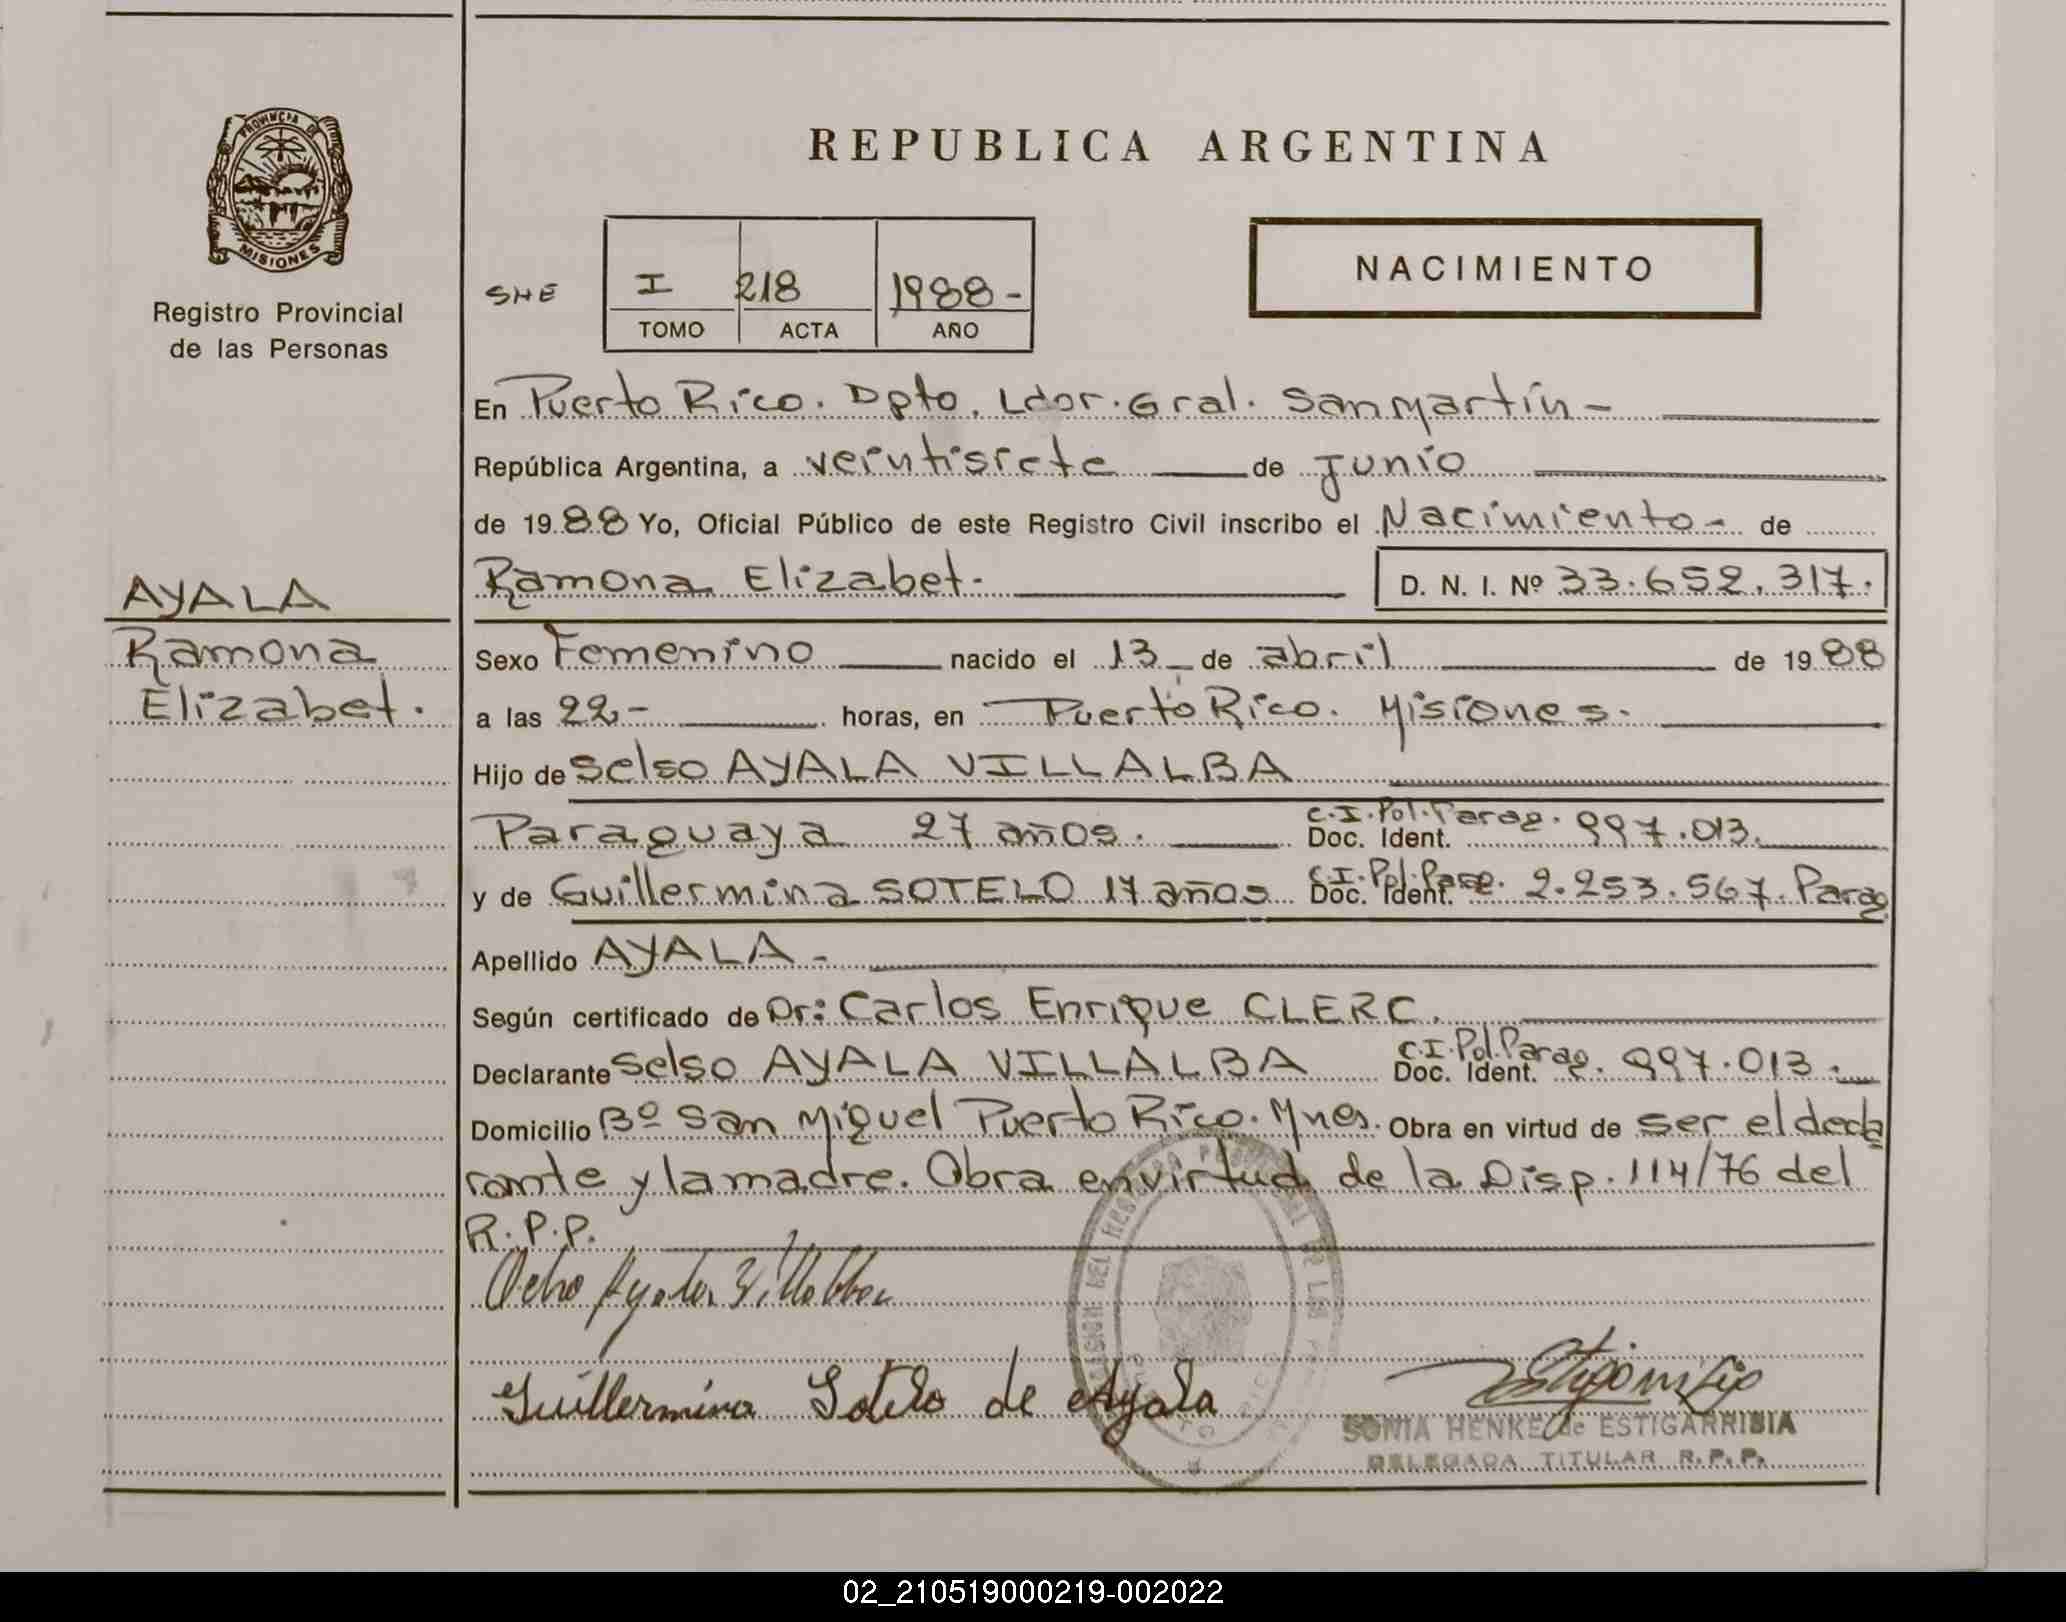 PROVINCIA DE
MISIONES
Registro Provincial
de las Personas
REPUBLICA ARGENTINA
SHE
I 218 1988-
TOMO ACTA AÑO
NACIMIENTO
En Puerto Rico. Dpto. Ldor. Gral. San Martín-
República Argentina, a veintisiete de junio
de 1988 Yo, Oficial Público de este Registro Civil inscribo el Nacimiento- de
Ramona Elizabet. D. N. I. Nº 33.652.317.
AYALA
Ramona
Elizabet.
Sexo Femenino nacido el 13 de abril de 1988
a las 22- horas, en Puerto Rico. Misiones.
Hijo de Selso AYALA VILLALBA
Paraguaya 27 años. C.I. Pol. Parag. Doc. Ident. 997.013.
y de Guillermina SOTELO 17 años C.I. Pol. Parag. Doc. Ident. 2.253.567. Parag
Apellido AYALA.-
Según certificado de Dr: Carlos Enrique CLERC.
Declarante Selso AYALA VILLALBA C.I. Pol. Parag. Doc. Ident. 997.013.
Domicilio Bº San Miguel Puerto Rico. Mnes. Obra en virtud de ser el decla
rante y la madre. Obra en virtud de la Disp. 114/76 del
R.P.P.
Ayala Villalba
Guillermina Sotelo de Ayala
SONIA HENKE de ESTIGARRIBIA
DELEGADA TITULAR R.P.P.
02_210519000219-002022